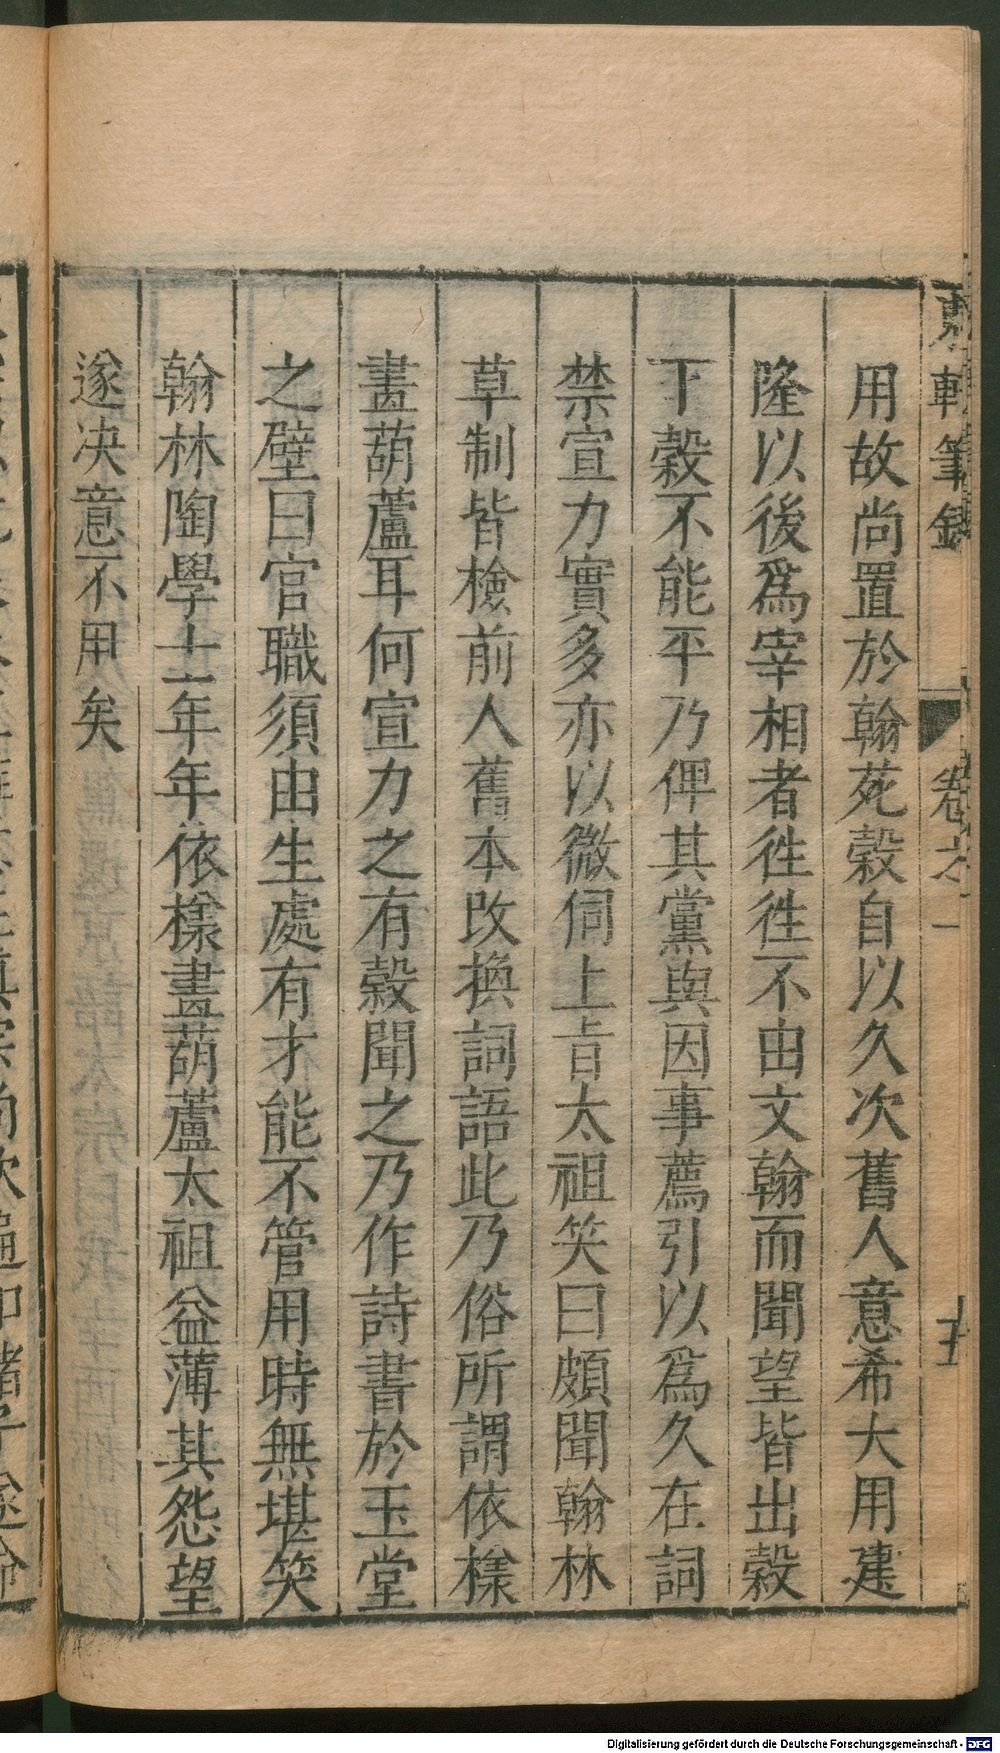 東軒筆錄 卷之一 五
用故尚置於翰苑穀自以久次舊人意希大用建
隆以後爲宰相者徃徃不由文翰而聞望皆出穀
下穀不能平乃俾其黨與因事薦引以爲久在詞
禁宣力實多亦以微伺上旨太祖笑曰頗聞翰林
草制皆檢前人舊本改換詞語此乃俗所謂依樣
畫葫蘆耳何宣力之有穀聞之乃作詩書於玉堂
之壁曰官職須由生處有才能不管用時無堪笑
翰林陶學士年年依樣畫葫蘆太祖益薄其怨望
遂决意不用矣
Digitalisierung gefördert durch die Deutsche Forschungsgemeinschaft - DFG